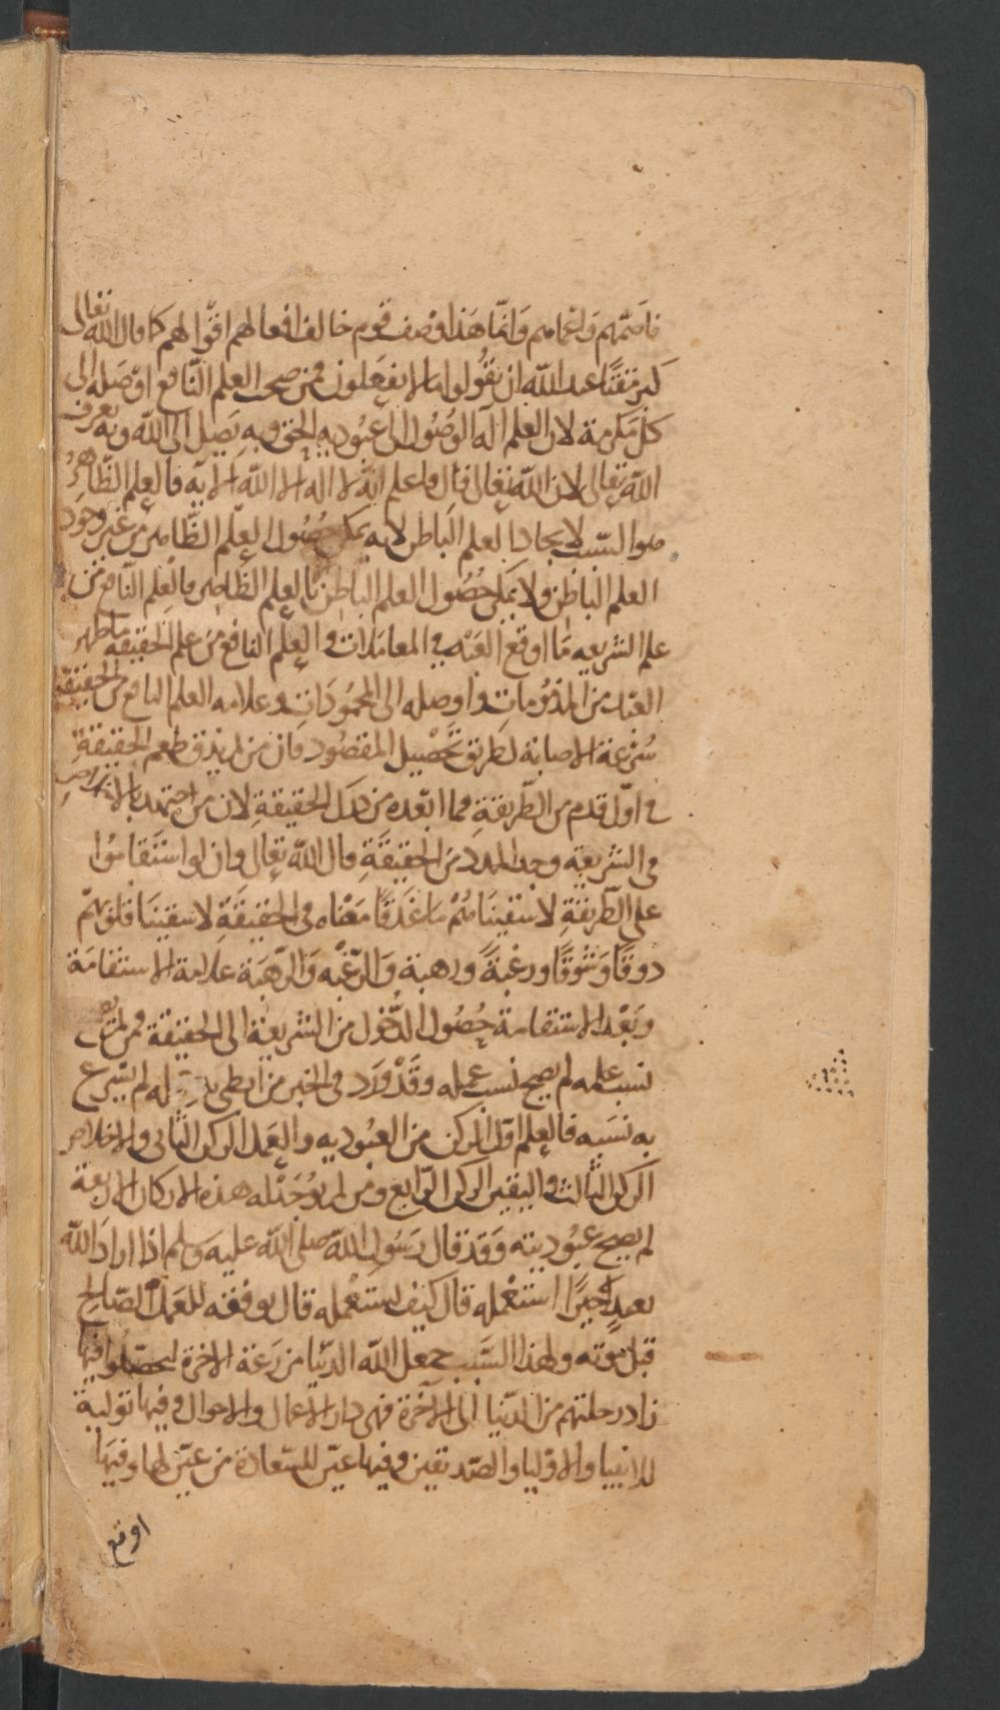 فاصمهم واعمامهم وانما هذا وصف قوم خالف افعالهم اقوالهم كما قال الله تعالى
كبر مقتا عند الله ان تقولوا ما لا تفعلون فمن صحب العلم النافع اوصله الى
كل مكرمة لان العلم آلة الوصول الى عبودية الحق وبه يصل الى الله وبه يعرف
الله تعالى لان الله تعالى قال فاعلم انه لا اله الا الله الاية فالعلم الظاهر
هو السبب لايجاد العلم الباطن لانه يمكن حصول العلم الظاهر من غير وجود
العلم الباطن ولا يمكن حصول العلم الباطن بالعلم الظاهر فالعلم النافع من
علم الشريعه ما اوقع العبد في المعاملات والعلم النافع من علم الحقيقة ما طهر
العبد من المذمومات واوصله الى المحمودات وعلامه العلم النافع من الحقيقة
سرعة الاصابة لطريق تحصيل المقصود فان من لم يذق طعم الحقيقة
في اول قدم من الطريقة فما ابعده من تلك الحقيقة لان من اجتهد بالاخلاص
في الشريعة وجد المدد من الحقيقة قال الله تعالى وان لو استقاموا
على الطريقة لاسقيناهم ماء غدقا معناه في الحقيقة لاسقينا قلوبهم
ذوقا وشوقا ورغبة ورهبة والرغبة والرهبة علامة الاستقامة
وبعد الاستقامة حصول الدخول من الشريعة الى الحقيقة فمن لم يصح
نسب علمه لم يصح نسب عمله وقد ورد في الخبر من ابطى به عمله لم يسرع
به نسبه فالعلم اول الركن من العبودية والعمل الركن الثاني والاخلاص
الركن الثالث واليقين الركن الرابع ومن لم يوجد له هذه الاركان الاربعة
لم يصح عبوديته وقد قال رسول الله صلى الله عليه وسلم اذا اراد الله
بعبد خيرا استعمله قال كيف يستعمله قال يوفقه للعمل الصالح
قبل موته ولهذا السبب جعل الله الدنيا مزرعة الاخرة ليحصلوا فيها
زاد رحلتهم من الدنيا الى الآخرة فهى دار الاعمال والاحوال وفيها تولية
للانبيا والاوليا والصديقين وفيها عين للسعادة من عين لها وفيها
اوقع